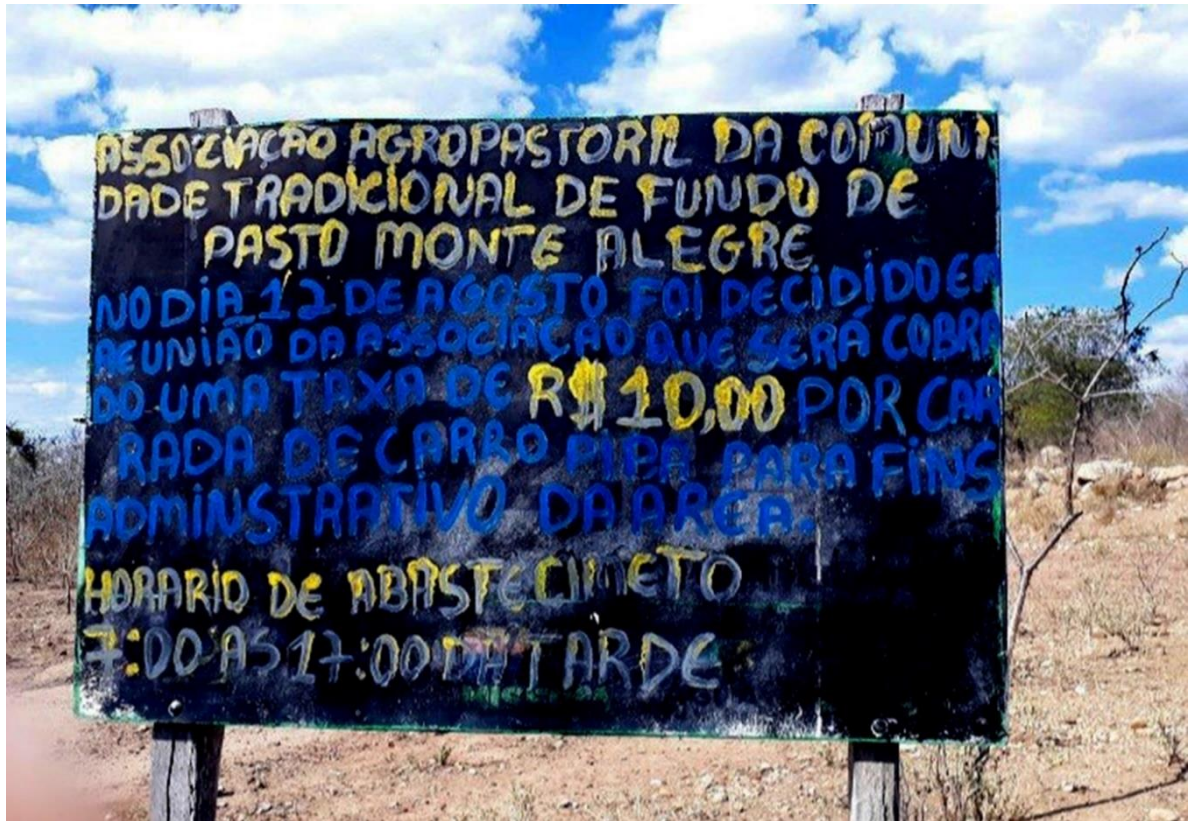 ASSOCIAÇÃO AGROPASTORIL DA COMUNI
DADE TRADICIONAL DE FUNDO DE
PASTO MONTE ALEGRE
NO DIA 12 DE AGOSTO FOI DECIDIDO EM
REUNIÃO DA ASSOCIAÇÃO QUE SERÁ COBRA
DO UMA TAXA DE R$ 10,00 POR CAR
RADA DE CARRO PIPA PARA FINS
ADMINSTRATIVO DA AREA.
HORARIO DE ABASTECIMETO
7:00 AS 17:00 DA TARDE